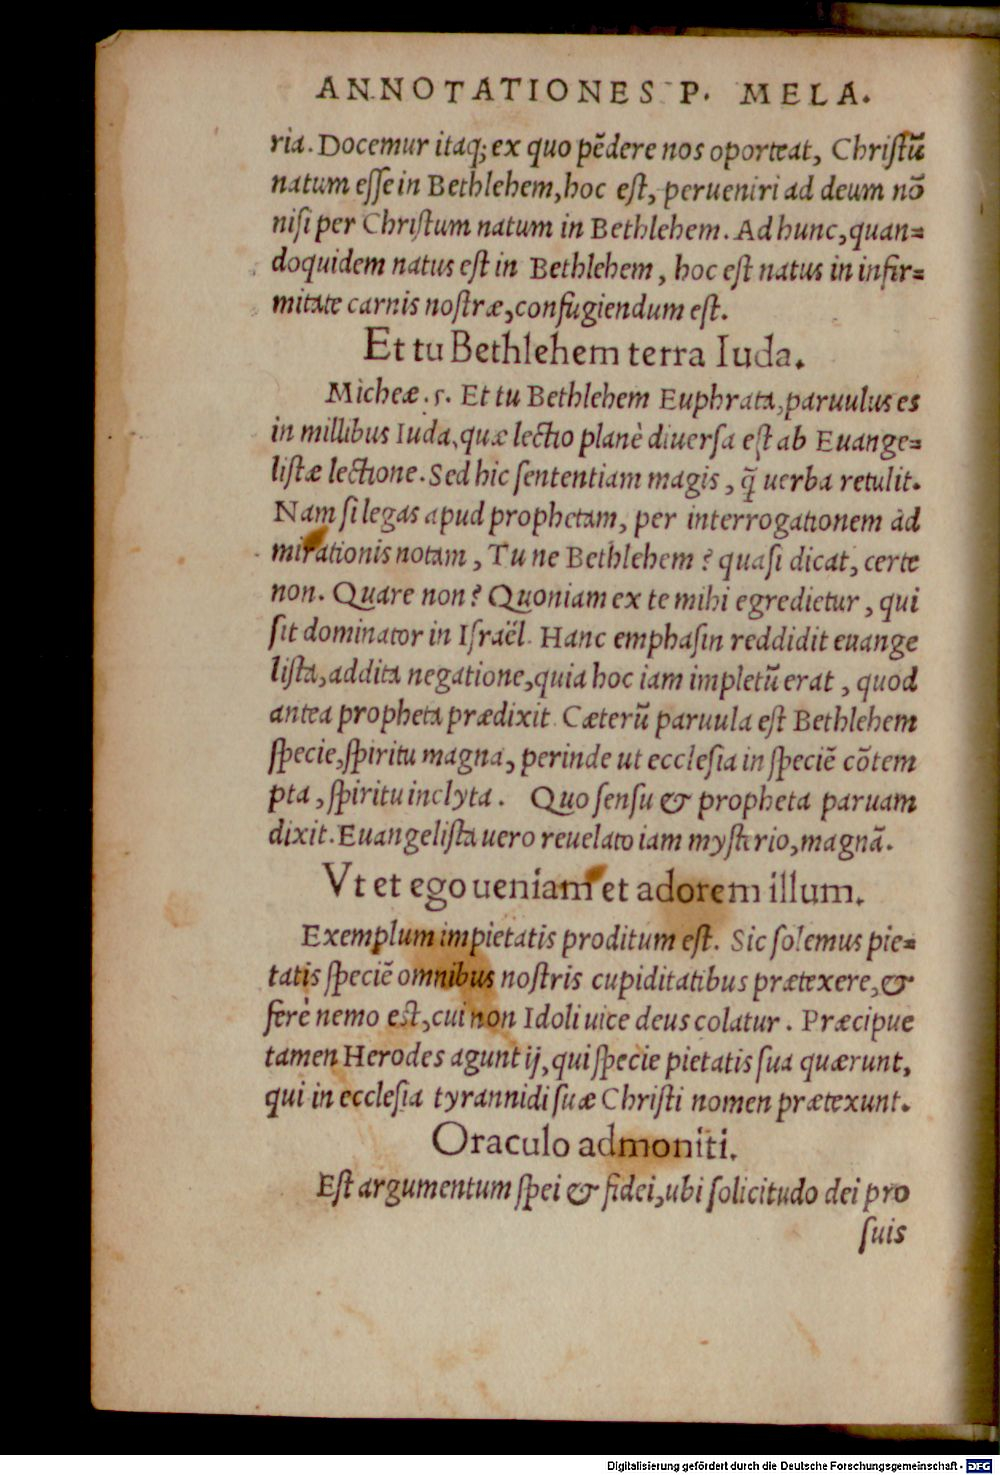 ANNOTATIONES P. MELA.
ria. Docemur itaq; ex quo pẽdere nos oporteat, Chriſtũ
natum eſſe in Bethlehem, hoc eſt, perueniri ad deum nõ
niſi per Chriſtum natum in Bethlehem. Ad hunc, quan=
doquidem natus eſt in Bethlehem, hoc eſt natus in infir=
mitate carnis noſtræ, confugiendum eſt.
Et tu Bethlehem terra Iuda.
Micheæ. 5. Et tu Bethlehem Euphrata, paruulus es
in millibus Iuda, quæ lectio planè diuerſa eſt ab Euange=
liſtæ lectione. Sed hic ſententiam magis, q̃ uerba retulit.
Nam ſi legas apud prophetam, per interrogationem ad
mirationis notam, Tu ne Bethlehem? quaſi dicat, certe
non. Quare non? Quoniam ex te mihi egredietur, qui
ſit dominator in Iſraël. Hanc emphaſin reddidit euange
liſta, addita negatione, quia hoc iam impletũ erat, quod
antea propheta prædixit. Cæterũ paruula eſt Bethlehem
ſpecie, ſpiritu magna, perinde ut eccleſia in ſpeciẽ cõtem
pta, ſpiritu inclyta. Quo ſenſu & propheta paruam
dixit. Euangeliſta uero reuelato iam myſterio, magnã.
Vt et ego ueniam et adorem illum.
Exemplum impietatis proditum eſt. Sic ſolemus pie=
tatis ſpeciẽ omnibus noſtris cupiditatibus prætexere, &
ferè nemo eſt, cui non Idoli uice deus colatur. Præcipue
tamen Herodes agunt ij, qui ſpecie pietatis ſua quærunt,
qui in eccleſia tyrannidi ſuæ Chriſti nomen prætexunt.
Oraculo admoniti.
Eſt argumentum ſpei & fidei, ubi ſolicitudo dei pro
ſuis
Digitalisierung gefördert durch die Deutsche Forschungsgemeinschaft - DFG